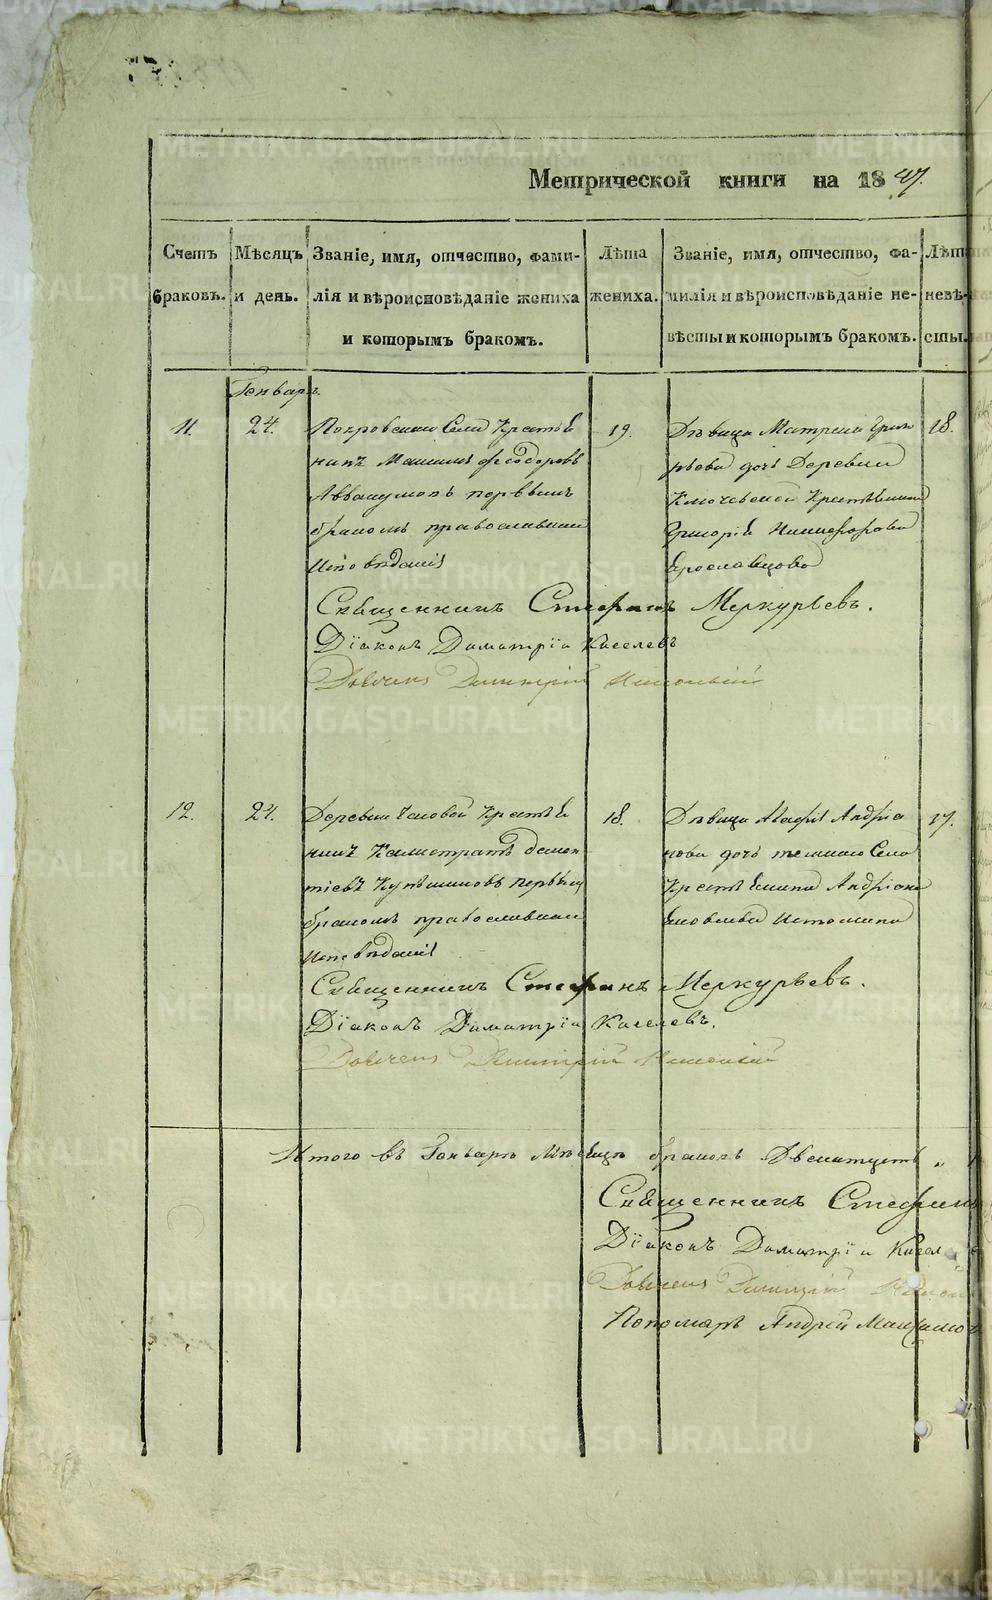 Метрической книги на 1847.
Счетъ браковъ.
Мѣсяцъ и день.
Званіе, имя, отчество, фами-
лія и вѣроисповѣданіе жениха
и которымъ бракомъ.
Лѣта
жениха.
Званіе, имя, отчество, фа-
милія и вѣроисповѣданіе не-
вѣсты и которымъ бракомъ.
Лѣта
невѣ-
сты.
Генварь.
11.
24.
Покровскаго Села Крестья
нинъ Максимъ Феодоровъ
Аввакумовъ первымъ
бракомъ православнаго
Исповѣданія
19.
Дѣвица Матрена Григо
рьева дочь Деревни
Ключевской Крестьянина
Григорія Никифорова
Ярославцова
18.
Священникъ Стефанъ Меркурьевъ.
Діаконъ Димитрій Киселевъ
Дьячекъ Димитрій
12.
24.
Деревни Часовой Крестья
нинъ Калистратъ Демен
тіевъ первымъ
бракомъ православнаго
Исповѣданія
18.
Дѣвица Агафія Андріа
нова дочь тогожъ Села
Крестьянина Андріана
Яковлева Истомина
17.
Священникъ Стефанъ Меркурьевъ.
Діаконъ Димитрій Киселевъ.
Дьячекъ Димитрій
Итого въ Генварѣ Мѣсяцѣ браковъ Двенатцеть „
Священникъ Стефанъ
Діаконъ Димитрій Кисел
Дьячекъ Димитрій
Пономарь Андрей Максимов
METRIKI.GASO-URAL.RU